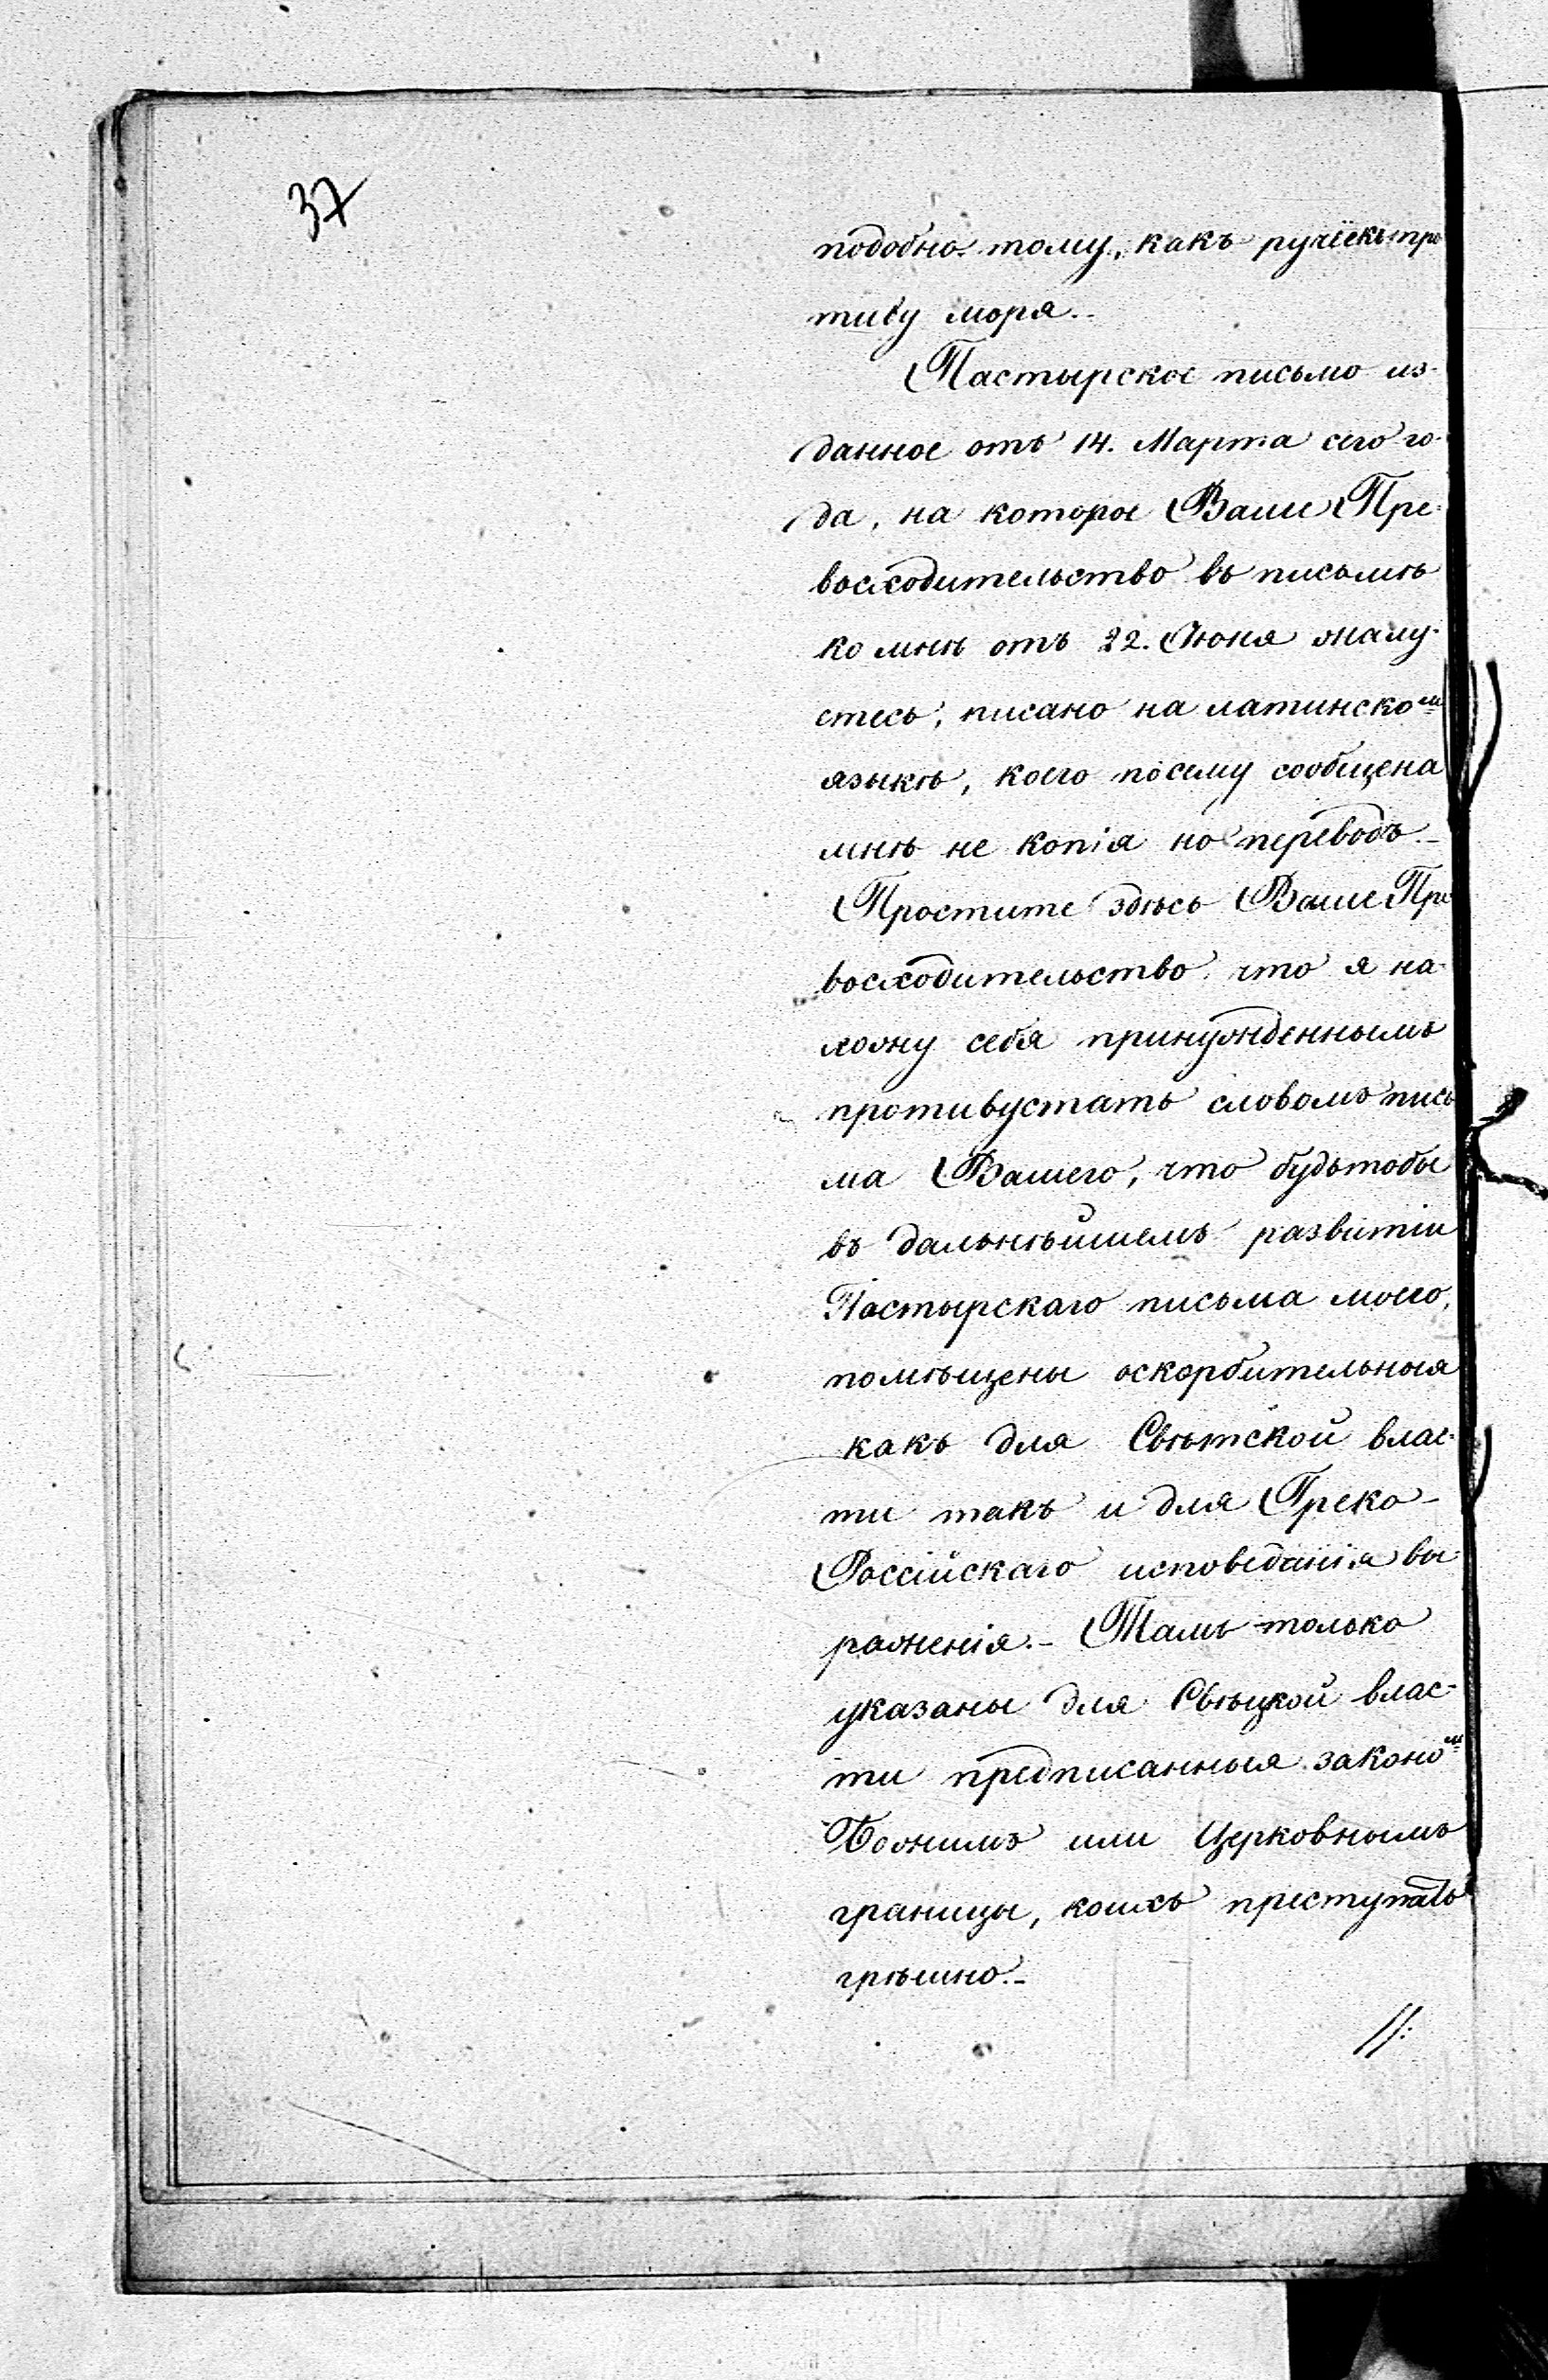 37
подобно тому, какъ ручёекъ про
тиву моря.-
Пастырское письмо из-
данное отъ 14. Марта сего го-
да, на которое Ваше Пре-
восходительство въ письмѣ
ко мнѣ отъ 22. Іюня жалу-
етесь, писано на латинском
языкѣ, коего посему сообщена
мнѣ не копія но переводъ.-
Простите здѣсь Ваше Пре
восходительство, что я на-
хожу себя принужденнымъ
противустать словомъ пись
ма Вашего, что будьтобы
въ дальнѣйшемъ развитіи
Пастырскаго письма моего,
помѣщены оскорбительныя
какъ для Свѣтской влас-
ти такъ и для Греко-
Россійскаго исповеданія вы-
раженія.- Тамъ только
указаны для Свѣцкой влас-
ти предписанныя законом
Божимъ или Церковнымъ
границы, коихъ преступать
грѣшно.-
//: